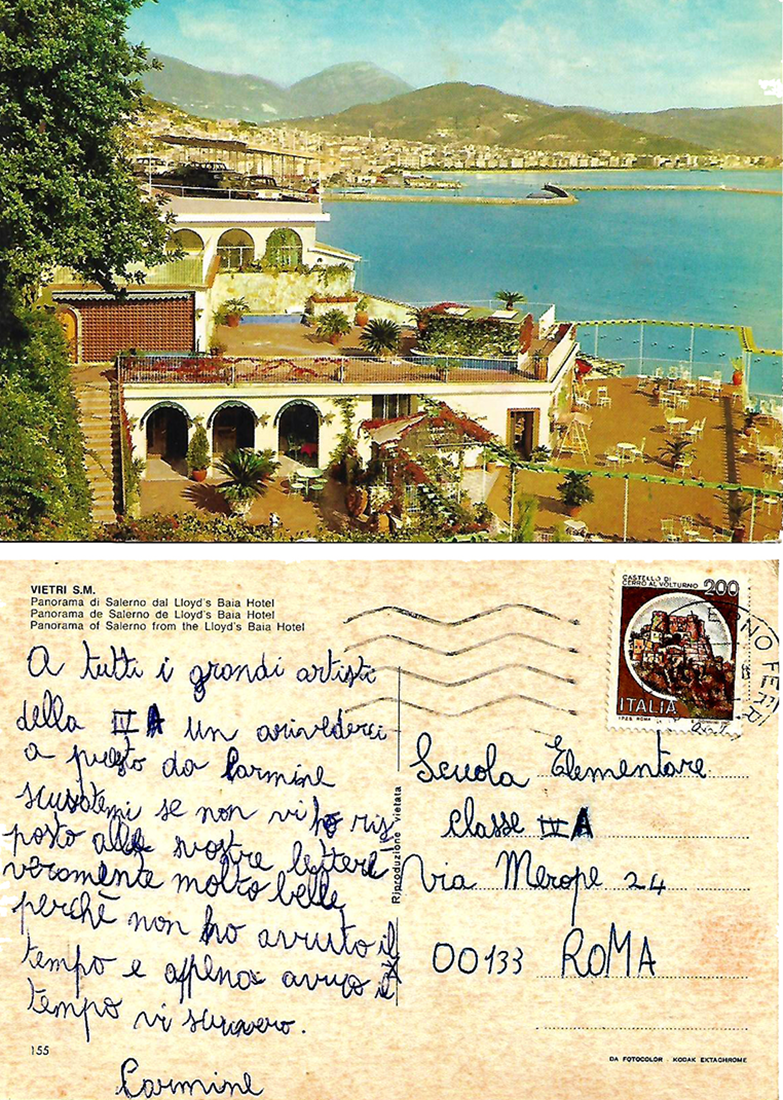 VIETRI S.M.
Panorama di Salerno dal Lloyd's Baia Hotel
Panorama de Salerno de Lloyd's Baia Hotel
Panorama of Salerno from the Lloyd's Baia Hotel
CASTELLO DI
CERRO AL VOLTURNO 200
ITALIA
A tutti i grandi artisti
della IV A un arivederci
a presto da Carmine
scusatemi se non vi ho ris
posto alle vostre lettere
veramente molto belle,
perchè non ho avuto il
tempo e appena avrò il
tempo vi scrivero.
Carmine
155
Riproduzione vietata
Scuola Elementare
classe IV A
Via Merope 24
00133 ROMA
DA FOTOCOLOR - KODAK EKTACHROME